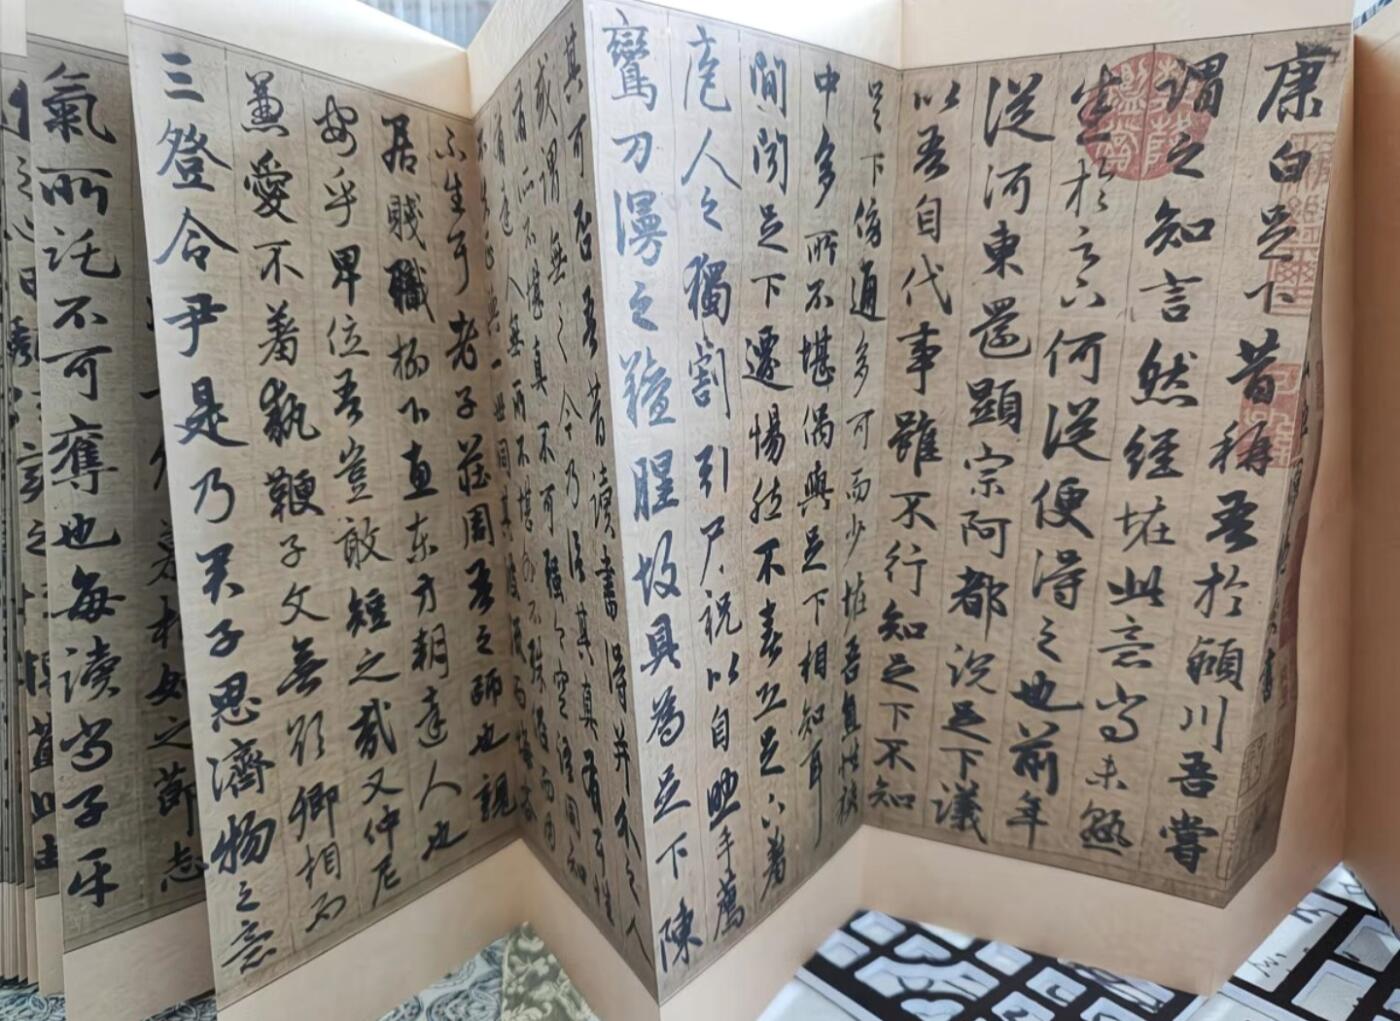 康白足下昔稱吾於潁川吾嘗
謂之知言然經恠此意尚未熟
悉於足下何從便得之也前年
從河東還顯宗阿都說足下議
以吾自代事雖不行知足下不知
足下傍通多可而少恠吾直性狹
中多所不堪偶與足下相知耳
間聞足下遷惕然不喜恐足下羞
庖人之獨割引尸祝以自助手薦
鸞刀漫之羶腥故具為足下陳
其可否吾昔讀書得并介之人
或謂無之今乃信其真有耳性
有所不堪真不可強今空語同知
有達人無所不堪外不殊俗而內
不失正與一世同其波流而悔吝
不生耳老子莊周吾之師也親
居賤職柳下惠東方朔達人也
安乎卑位吾豈敢短之哉又仲尼
兼愛不羞執鞭子文無欲卿相而
三登令尹是乃君子思濟物之意
慕相如之節志
氣所託不可奪也每讀尚子平